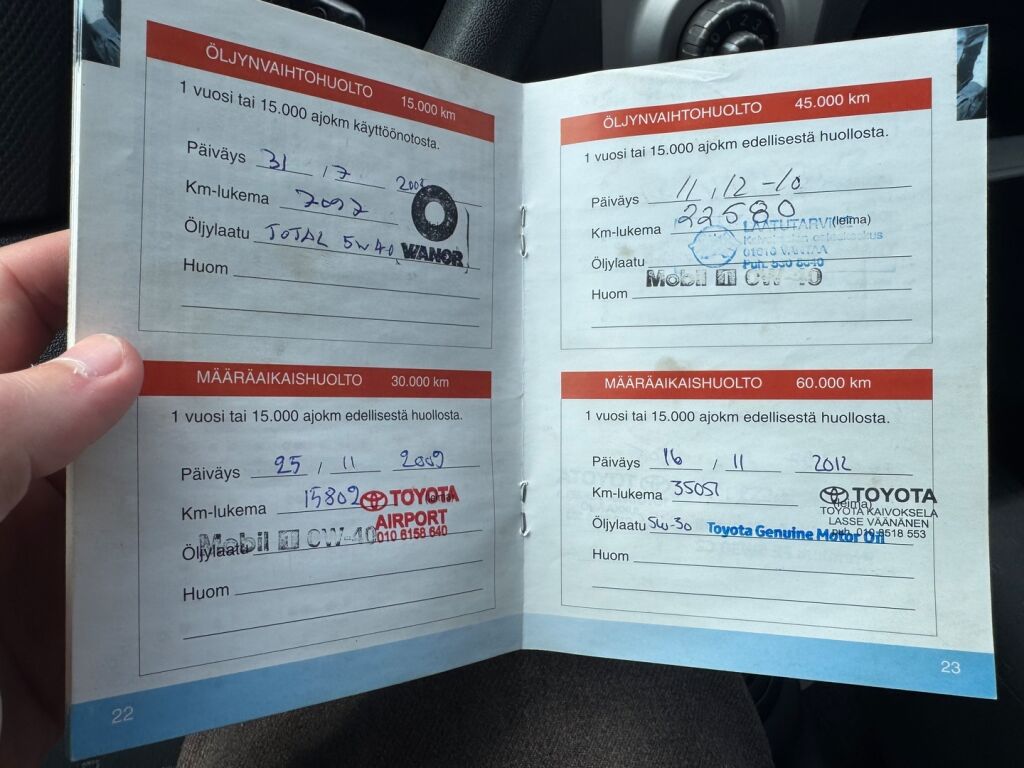 ÖLJYNVAIHTOHUOLTO 15.000 km
1 vuosi tai 15.000 ajokm käyttöönotosta.
Päiväys 31 / 7 2008
Km-lukema
Öljylaatu TOTAL 5W40
WANOR
Huom
MÄÄRÄAIKAISHUOLTO 30.000 km
1 vuosi tai 15.000 ajokm edellisestä huollosta.
Päiväys 25 / 11 2009
Km-lukema 15802
TOYOTA
AIRPORT
010 6158 640
Öljylaatu Mobil 1 0W-40
Huom
22
ÖLJYNVAIHTOHUOLTO 45.000 km
1 vuosi tai 15.000 ajokm edellisestä huollosta.
Päiväys 11.12-10
Km-lukema 22580 (leima)
LAATUTARVIKE
01510 VANTAA
Öljylaatu
Mobil 1 0W-40
Huom
MÄÄRÄAIKAISHUOLTO 60.000 km
1 vuosi tai 15.000 ajokm edellisestä huollosta.
Päiväys 16 / 11 2012
Km-lukema 35051 (leima)
TOYOTA
TOYOTA KAIVOKSELA
LASSE VÄÄNÄNEN
Öljylaatu 5W-30 Toyota Genuine Motor Oil
Huom
23